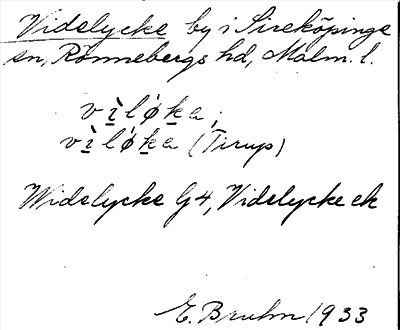 Videlycke by i Sireköpinge
sn, Rönnebergs hd, Malm. l.
vìløka;
vìløka (Tirup)
Widelycke G4, Videlycke ek
E. Bruhn 1933